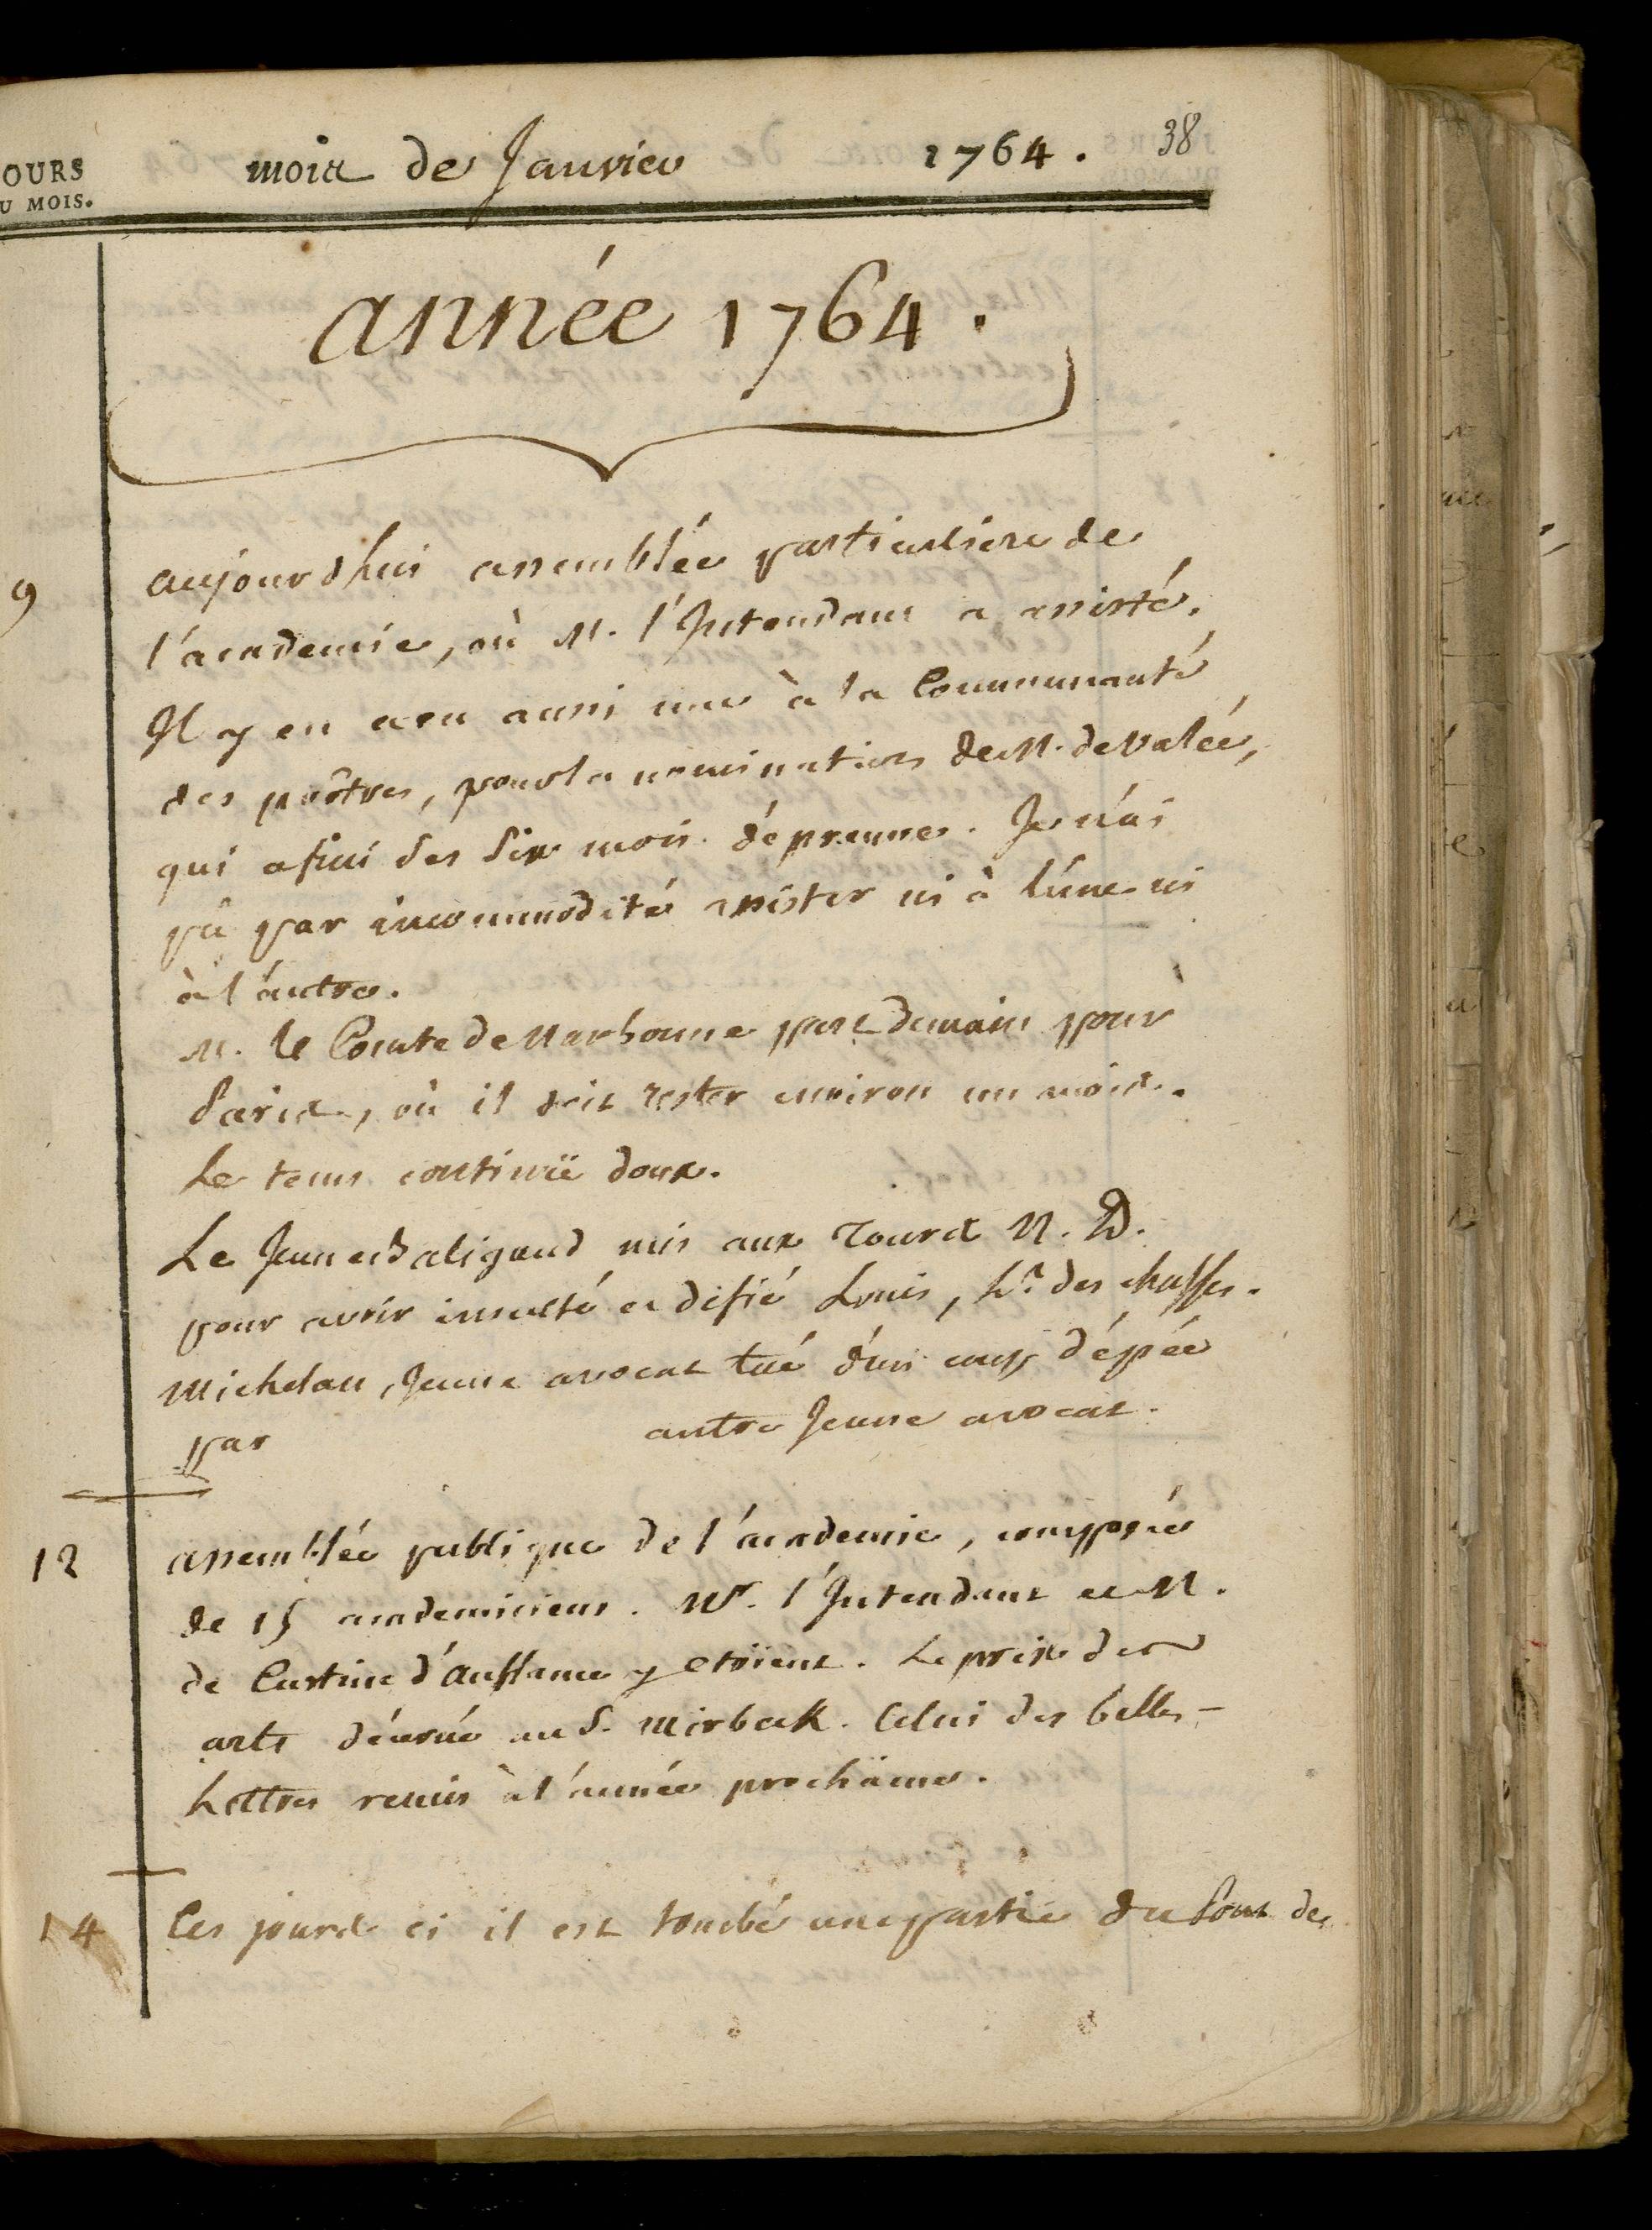 OURS
U MOIS.
mois de Janvier 1764. 38
année 1764.
9 aujourdhui assemblée particuliere de
l'academie, où M. l'Intendant a assisté.
Il y en a eu aussi une à la Communauté
des prêtres, pour la nomination de M. de Valée,
qui a fini ses six mois d'épreuve. Je n'ai
pû par incommodité assister ni à l'une ni
à l'autre.
M. le Comte de Narbonne part demain pour
Paris, où il doit rester environ un mois.
Le tems continuë doux.
Le Jeune Baligand mis aux Tours N. D.
pour avoir insulté et defié Louis, Lt. des chasses.
Michelan, Jeune avocat tué d'un coup d'épée
par autre Jeune avocat.
12 assemblée publique de l'academie, composée
de 15 academiciens. Mr. l'Intendant et M.
de Custine d'Auflance y etoient. Le prix des
arts décerné au S. Mirbeck. Celui des belles-
Lettres remis à l'année prochaine.
14 Ces jours ci il est tombé une partie du Pont des